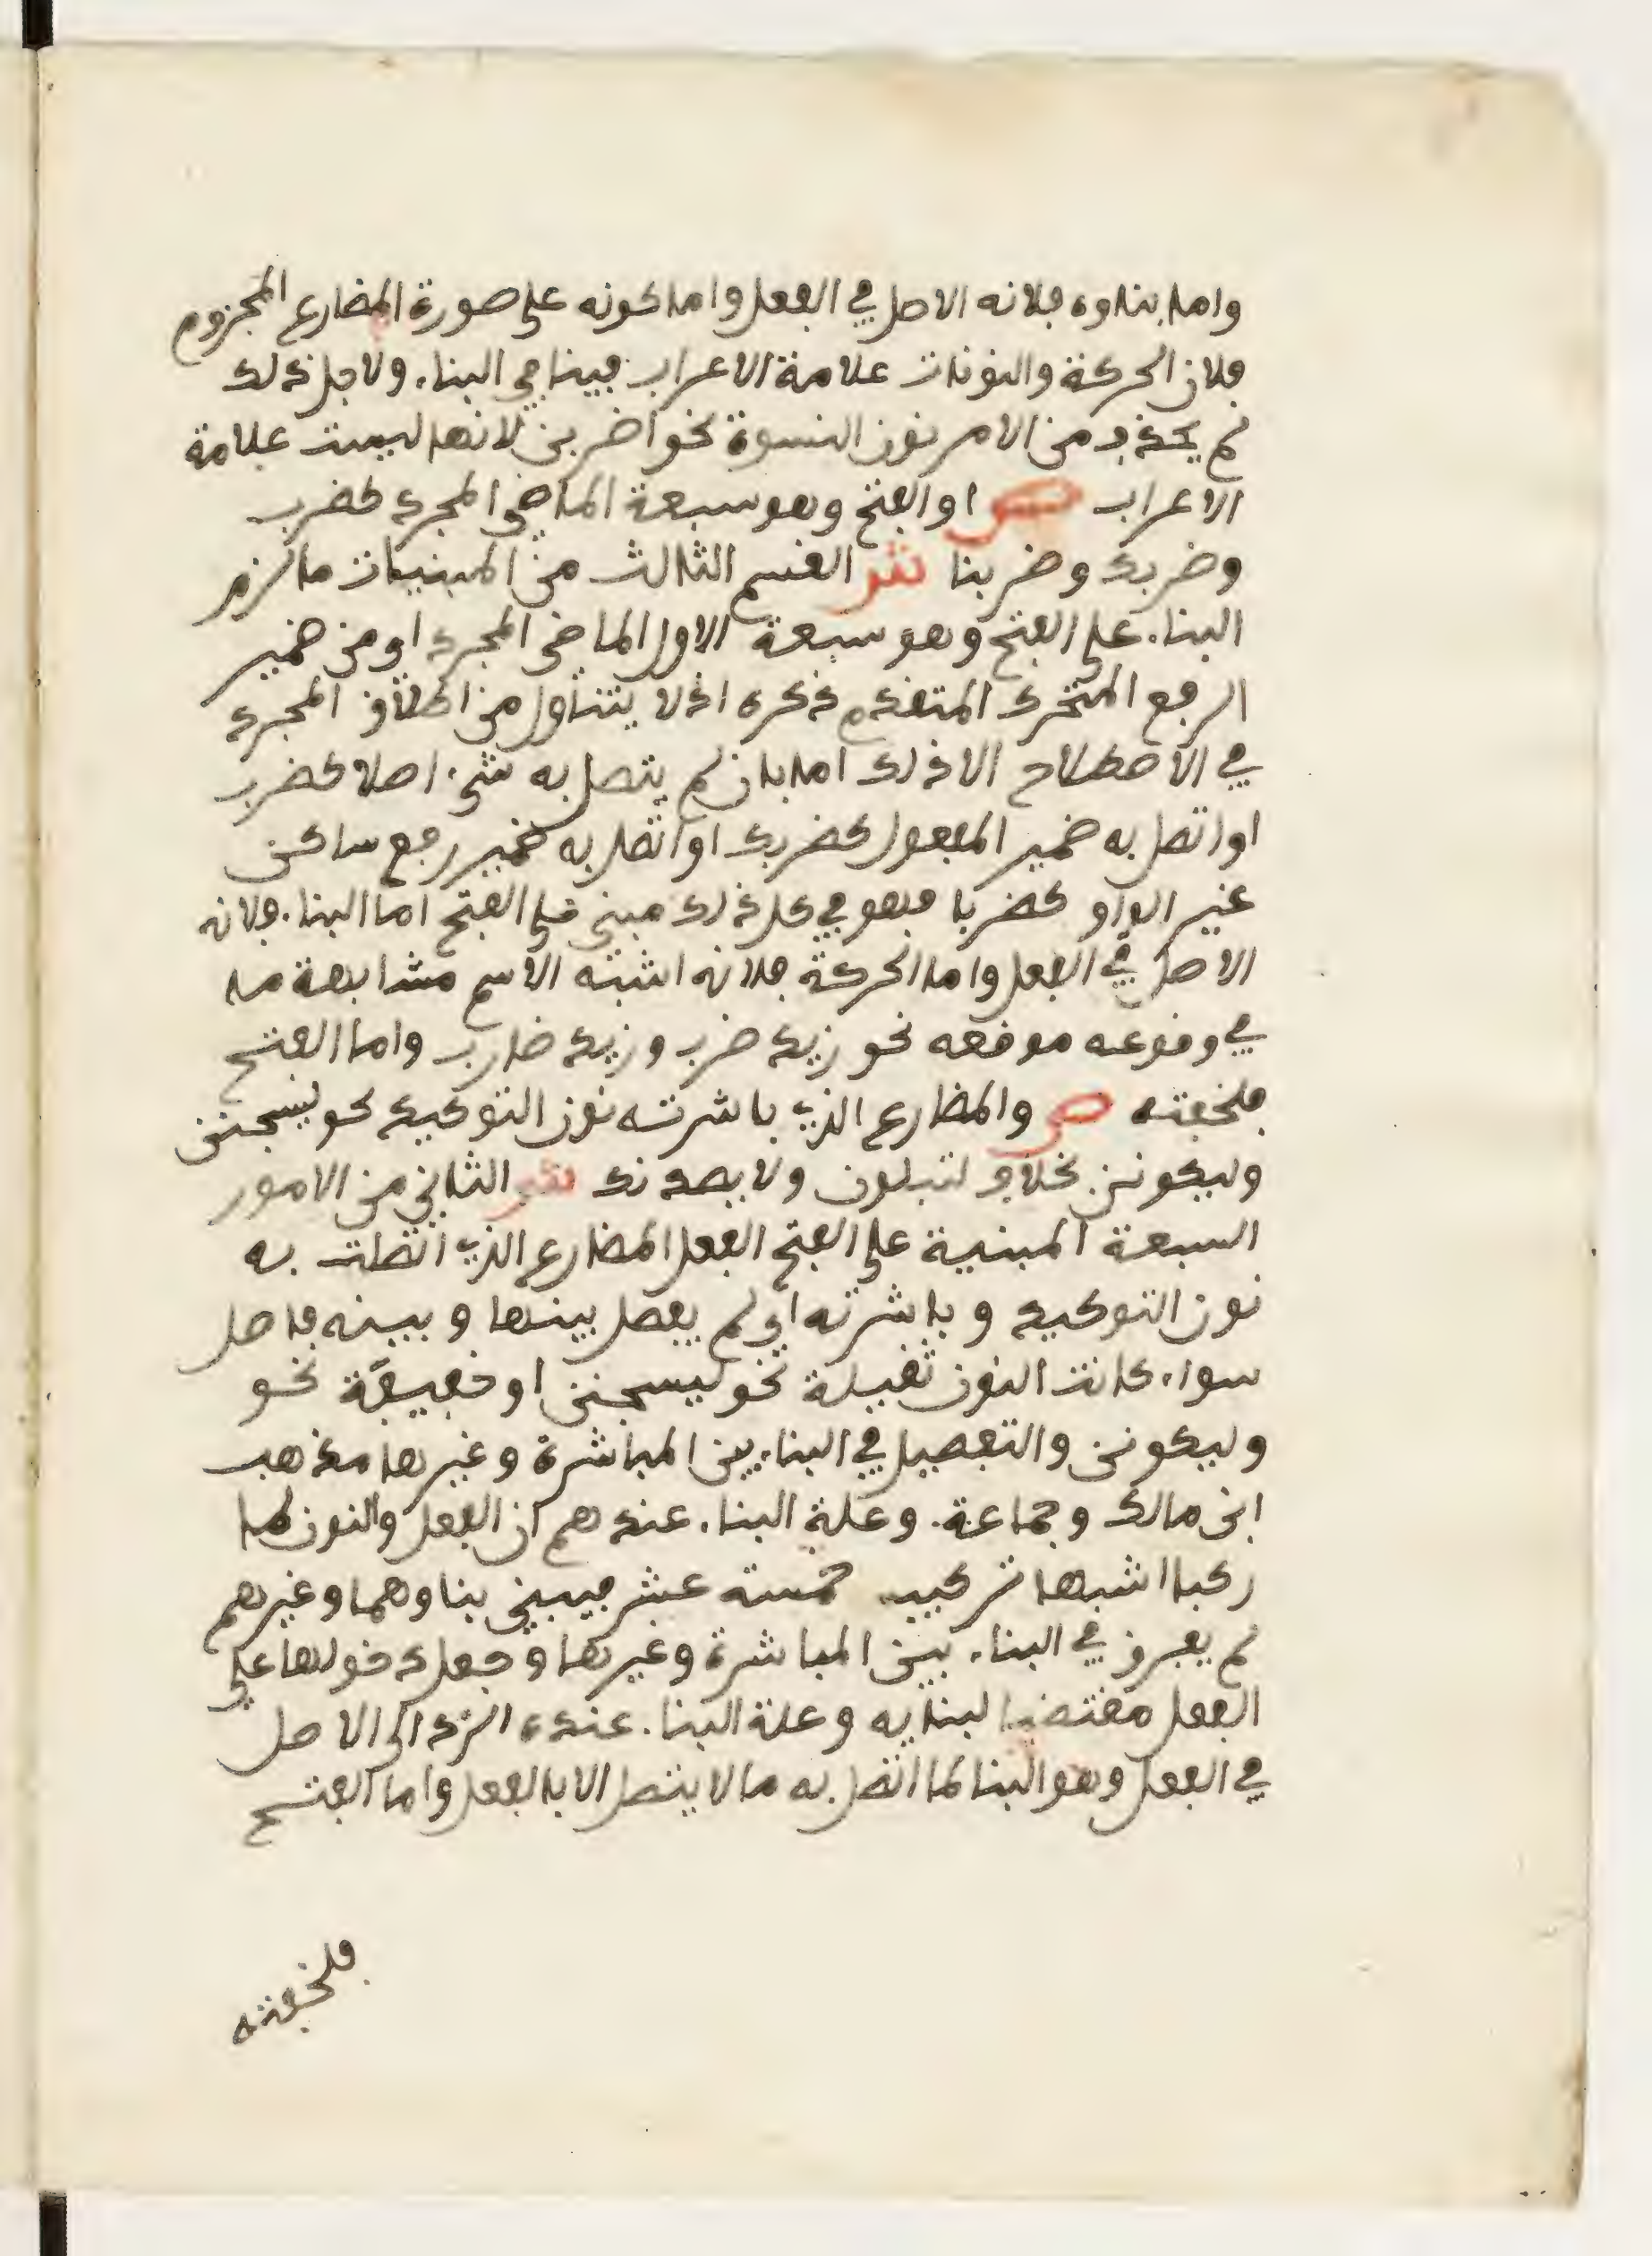 واما بناوه فلانه الاصل في الفعل واما كونه على صورة المضارع المجزوم
فلان الحركة والنونات علامة الاعراب فينافي البناء ولاجل ذلك
لم يحذف من الامر نون النسوة نحو اضربن لانها ليست علامة
الاعراب ص او الفتح وهو سبعة الماضي المجرد كضرب
وضربك وضربنا ش القسم الثالث من المبنيات ما لزم
البناء على الفتح وهو سبعة الاول الماضي المجرد اي من ضمير
الرفع المتحرك المتقدم ذكره اذ لا يتناول من اطلاق المجرد
في الاصطلاح الا ذلك اما بان لم يتصل به شيء اصلا كضرب
او اتصل به ضمير المفعول كضربك او اتصل به ضمير رفع ساكن
غير الواو كضربا فهو في كل ذلك مبني على الفتح اما البناء فلانه
الاصل في الفعل واما الحركة فلانه اشبه الاسم مشابهة ما
في وقوعه موقعه نحو زيد ضرب وزيد ضارب واما الفتح
فلخفته ص والمضارع الذي باشرته نون التوكيد نحو ليسجنن
وليكونن بخلاف لتبلون ولا يصدنك ش الثاني من الامور
السبعة المبنية على الفتح الفعل المضارع الذي اتصلت به
نون التوكيد وباشرته اي لم يفصل بينها وبينه فاصل
سواء كانت النون ثقيلة نحو ليسجنن او خفيفة نحو
وليكونن والتفصيل في البناء بين المباشرة وغيرها مذهب
ابن مالك وجماعة وعلة البناء عندهم ان الفعل والنون لما
ركبا اشبها تركيب خمسة عشر فيبنى بناوهما وغيرهم
لم يفرق في البناء بين المباشرة وغيرها وجعل دخولها على
الفعل مقتضيا لبنايه وعلة البناء عنده الرد الى الاصل
في الفعل وهو البنا لما اتصل به ما لا يتصل الا بالفعل واما الفتح
فلخفته